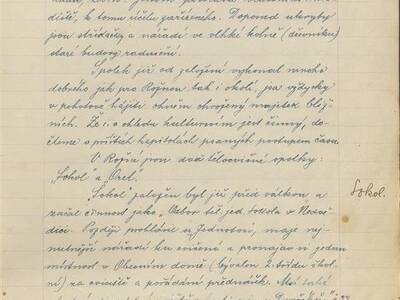 diště, k tomu účelu zařízeného. Doposud ukryty
jsou stříkačky a nářadí ve vlhké kolně (dřevníku)
staré budovy radniční.
Spolek již od založení vykonal mnoho
dobrého jak pro Rožnou tak i okolí, jsa vždycky
v pohotově hájiti ohněm ohrožený majetek bliž-
ních. Že i s ohledu kulturním jest činný, do-
čteme v příštích kapitolách psaných postupem času.
V Rožné jsou dva tělocvičné spolky:
„Sokol" a „Orel".
„Sokol" založen byl již před válkou a
začal činnost jako „Odbor těl. jed. Sokola v Nedvě-
dici. Později prohlášen za Jednotu, maje nej-
nutnější nářadí ku cvičení a pronajav si jednu
místnost v Obecním domě (bývalou 2. třídu školní)
na cvičiště a pořádání přednášek. Má také
Sokol.